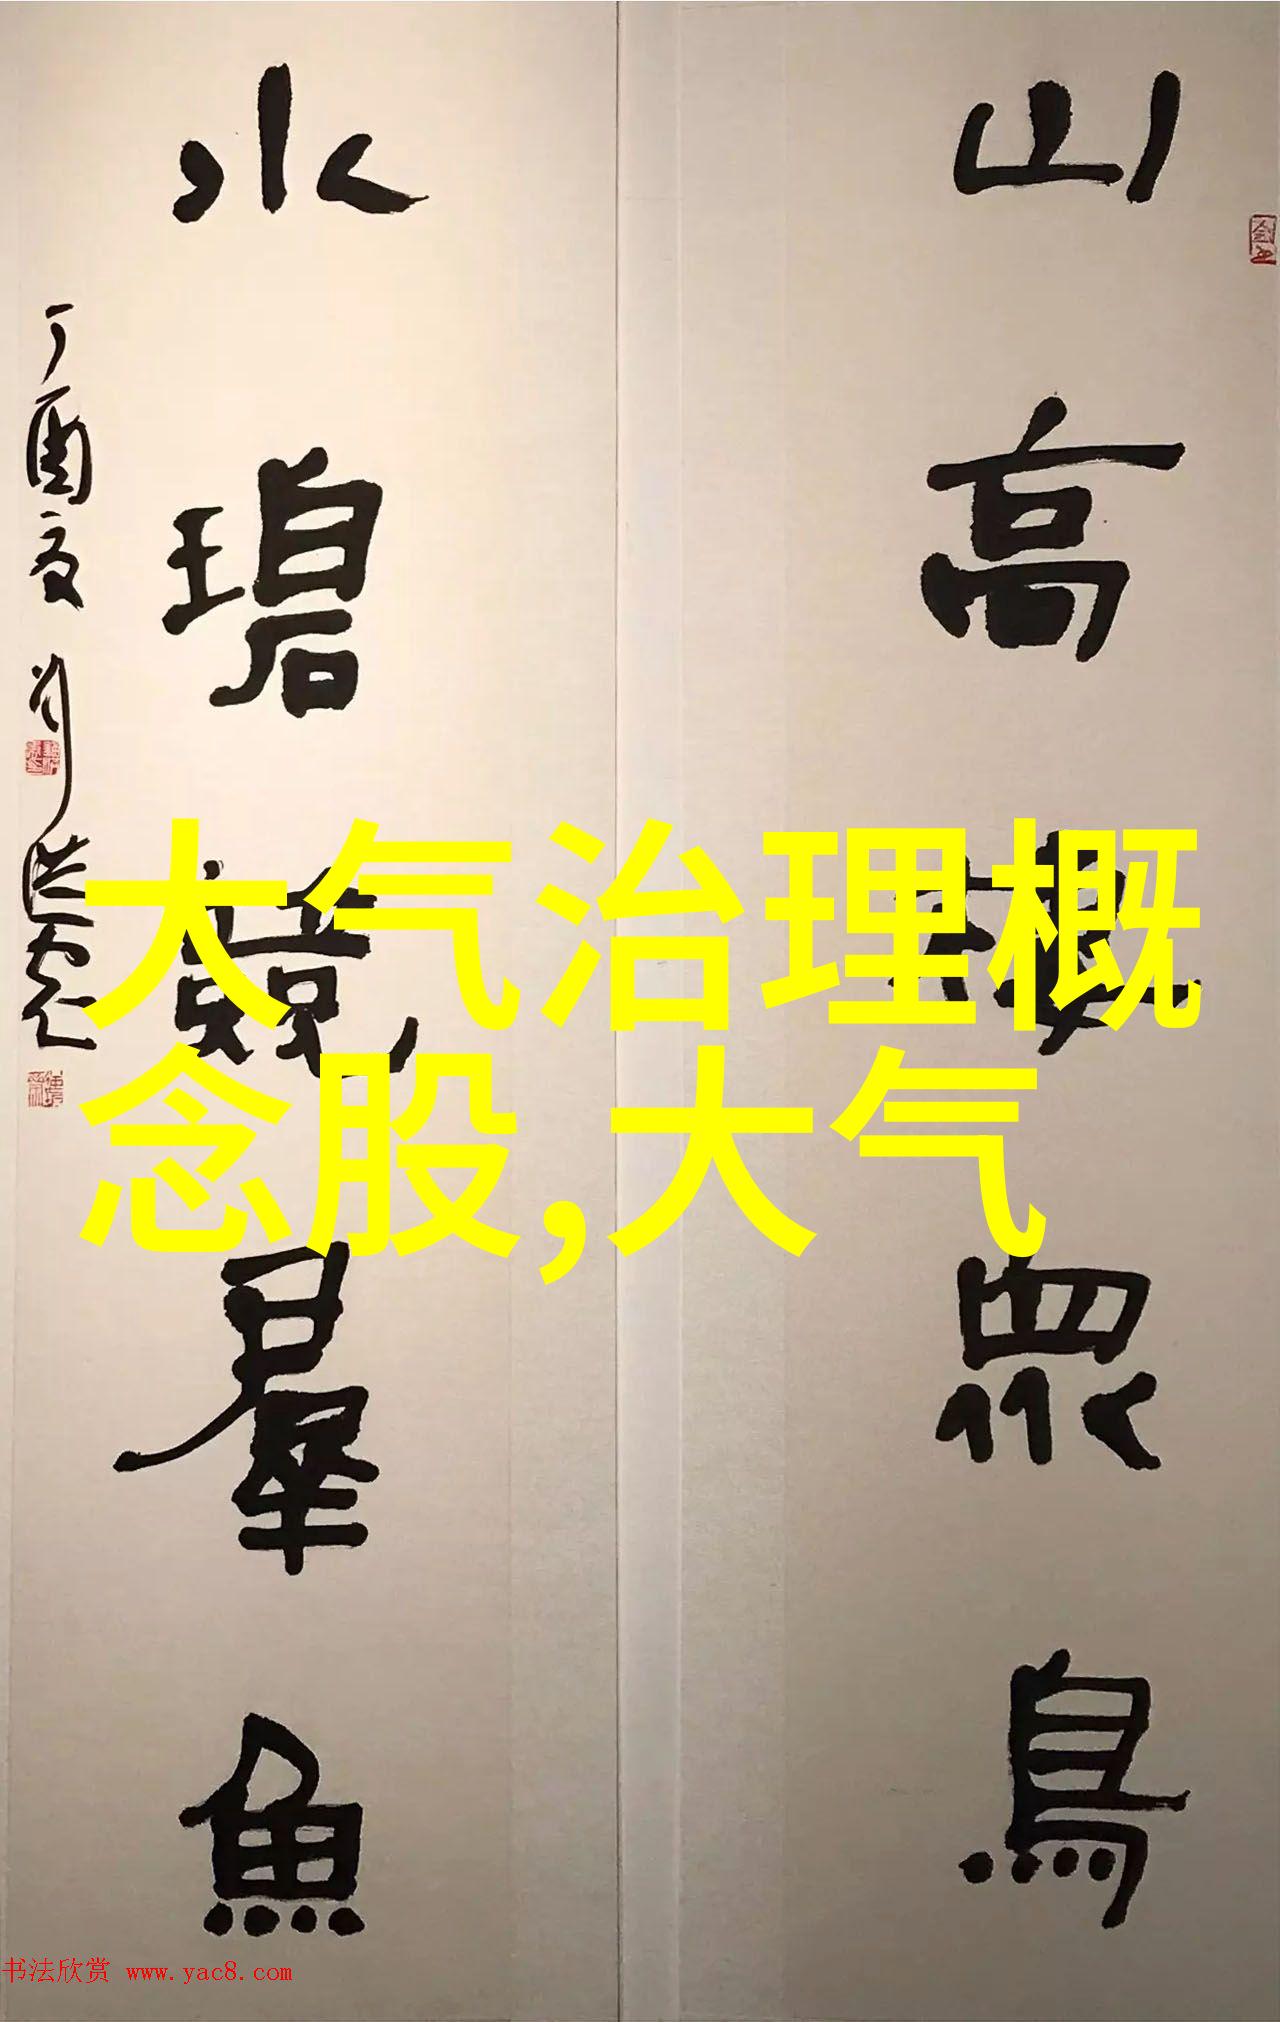 山高棲眾鳥
水碧競羣魚
丁酉夏刘洪彪
大气治理概
念股,大气
书法欣赏 www.yac8.com